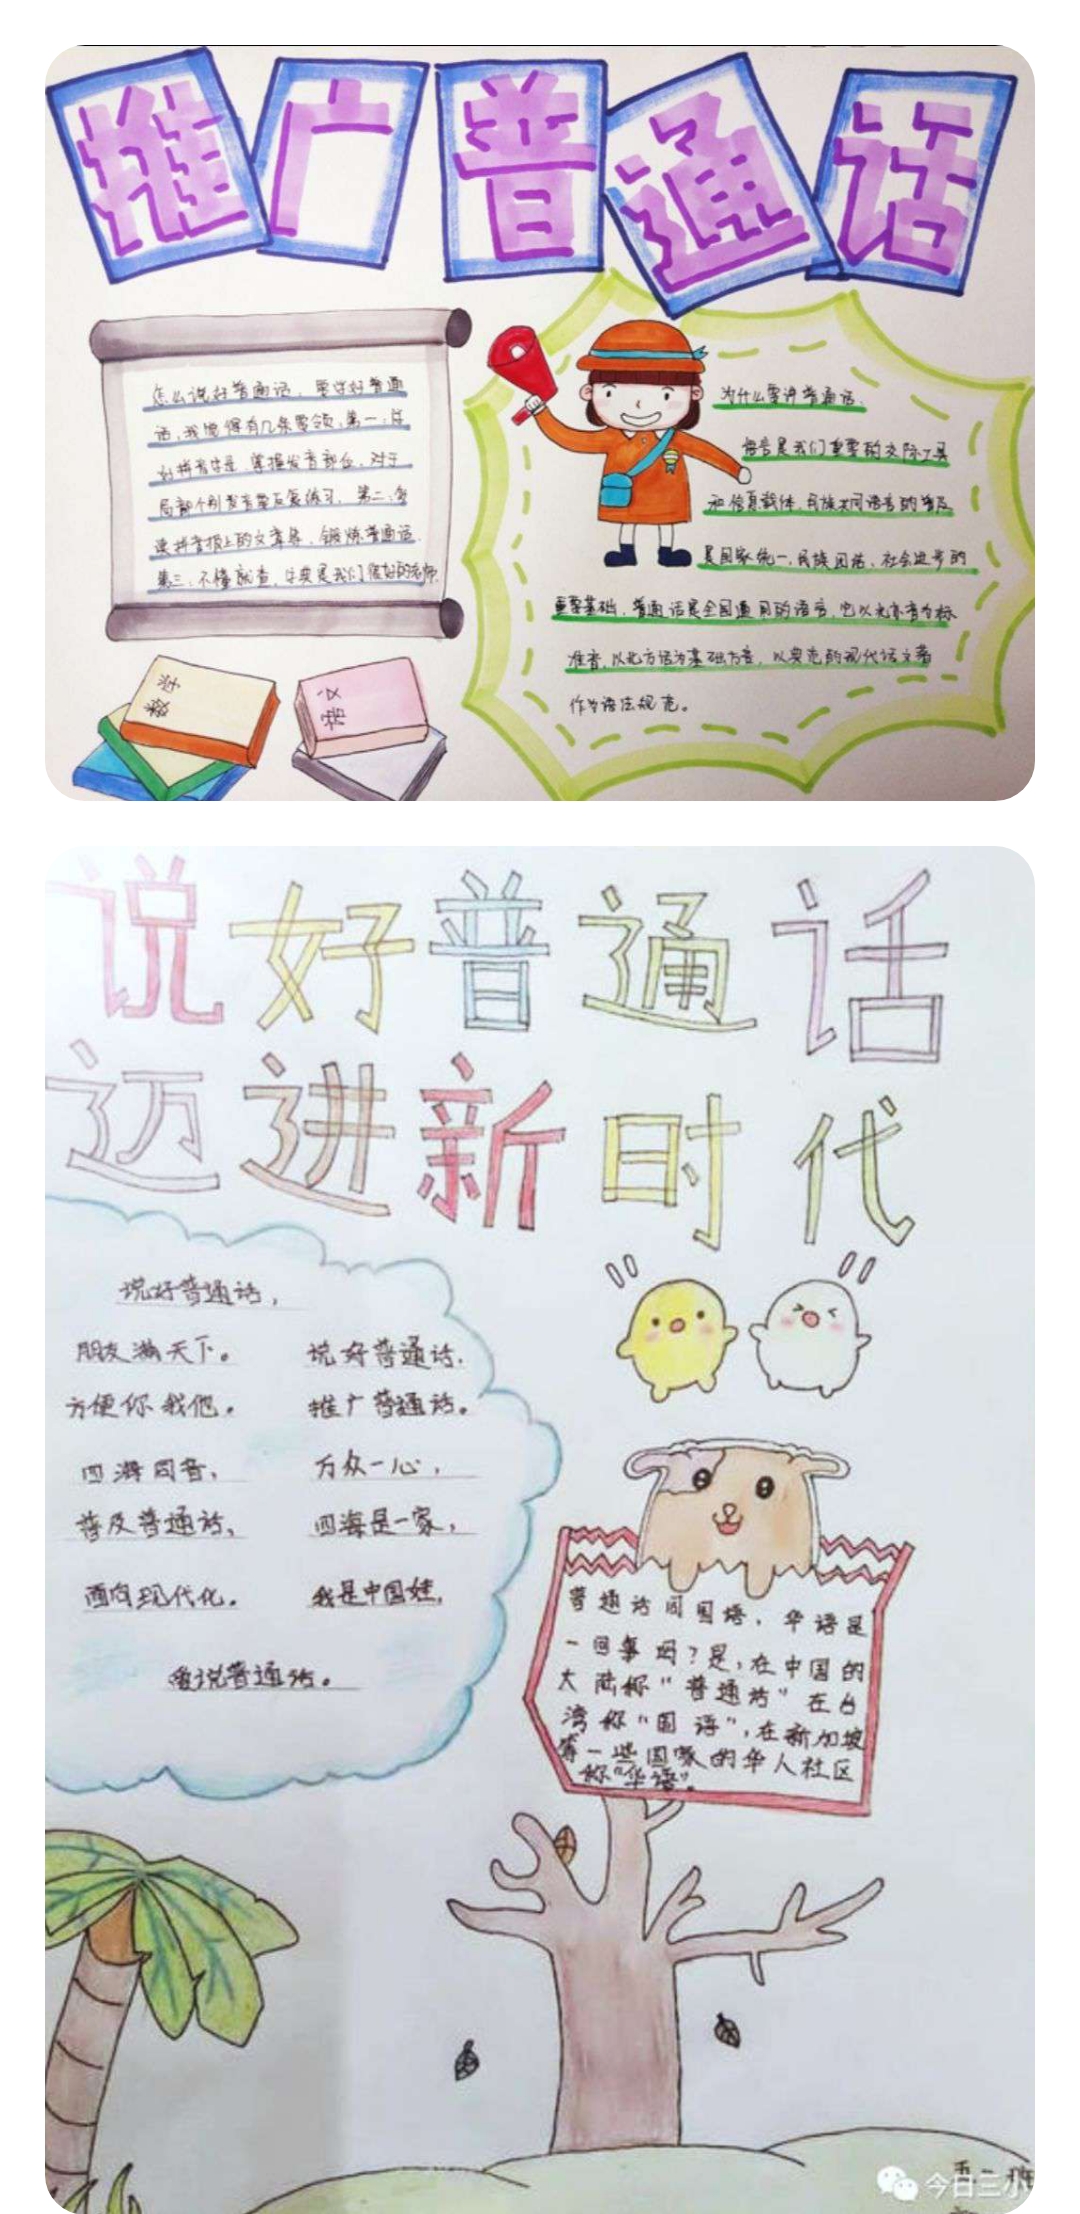 推广普通话
怎么说好普通话，要学好普通
话，我觉得有几条要领，第一：学
好拼音字母，掌握发音部位，对于
局部个别发音要反复练习，第二：多
读拼音报上的文章等，锻炼普通话
第三：不懂就查，字典是我们很好的老师.
数学
语文
为什么要讲普通话.
语言是我们重要的交际工具
和信息载体，民族共同语言的普及
是国家统一，民族团结、社会进步的
重要基础，普通话是全国通用的语言，它以北京音为标
准音，以北方话为基础方言，以典范的现代语文著
作为语法规范。
说好普通话
迈进新时代
说好普通话，
朋友满天下。
方便你我他。
四海同音，
普及普通话，
面向现代化。
说好普通话，
推广普通话。
万众一心，
四海是一家，
我是中国娃，
爱说普通话。
普通话同国语，华语是
一回事吗？是，在中国的
大陆称“普通话”在台
湾称“国语”，在新加坡
等一些国家的华人社区
称“华语”。
今日三小